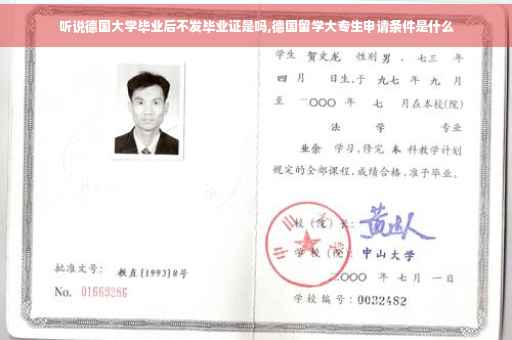 听说德国大学毕业后不发毕业证是吗,德国留学大专生申请条件是什么
学生 贺文龙 性别 男 , 七三 年
四 月 日生,于 九七 年 九 月
至 二〇〇〇 年 七 月在本校(院)
法 学 专业
业余 学习,修完 本 科教学计划
规定的全部课程,成绩合格,准予毕业。
校(院)长:
学校(院): 中山大学
二〇〇〇 年 七 月 一 日
批准文号: 教直[1993]8号
No. 01669286
学校编号: 0032482